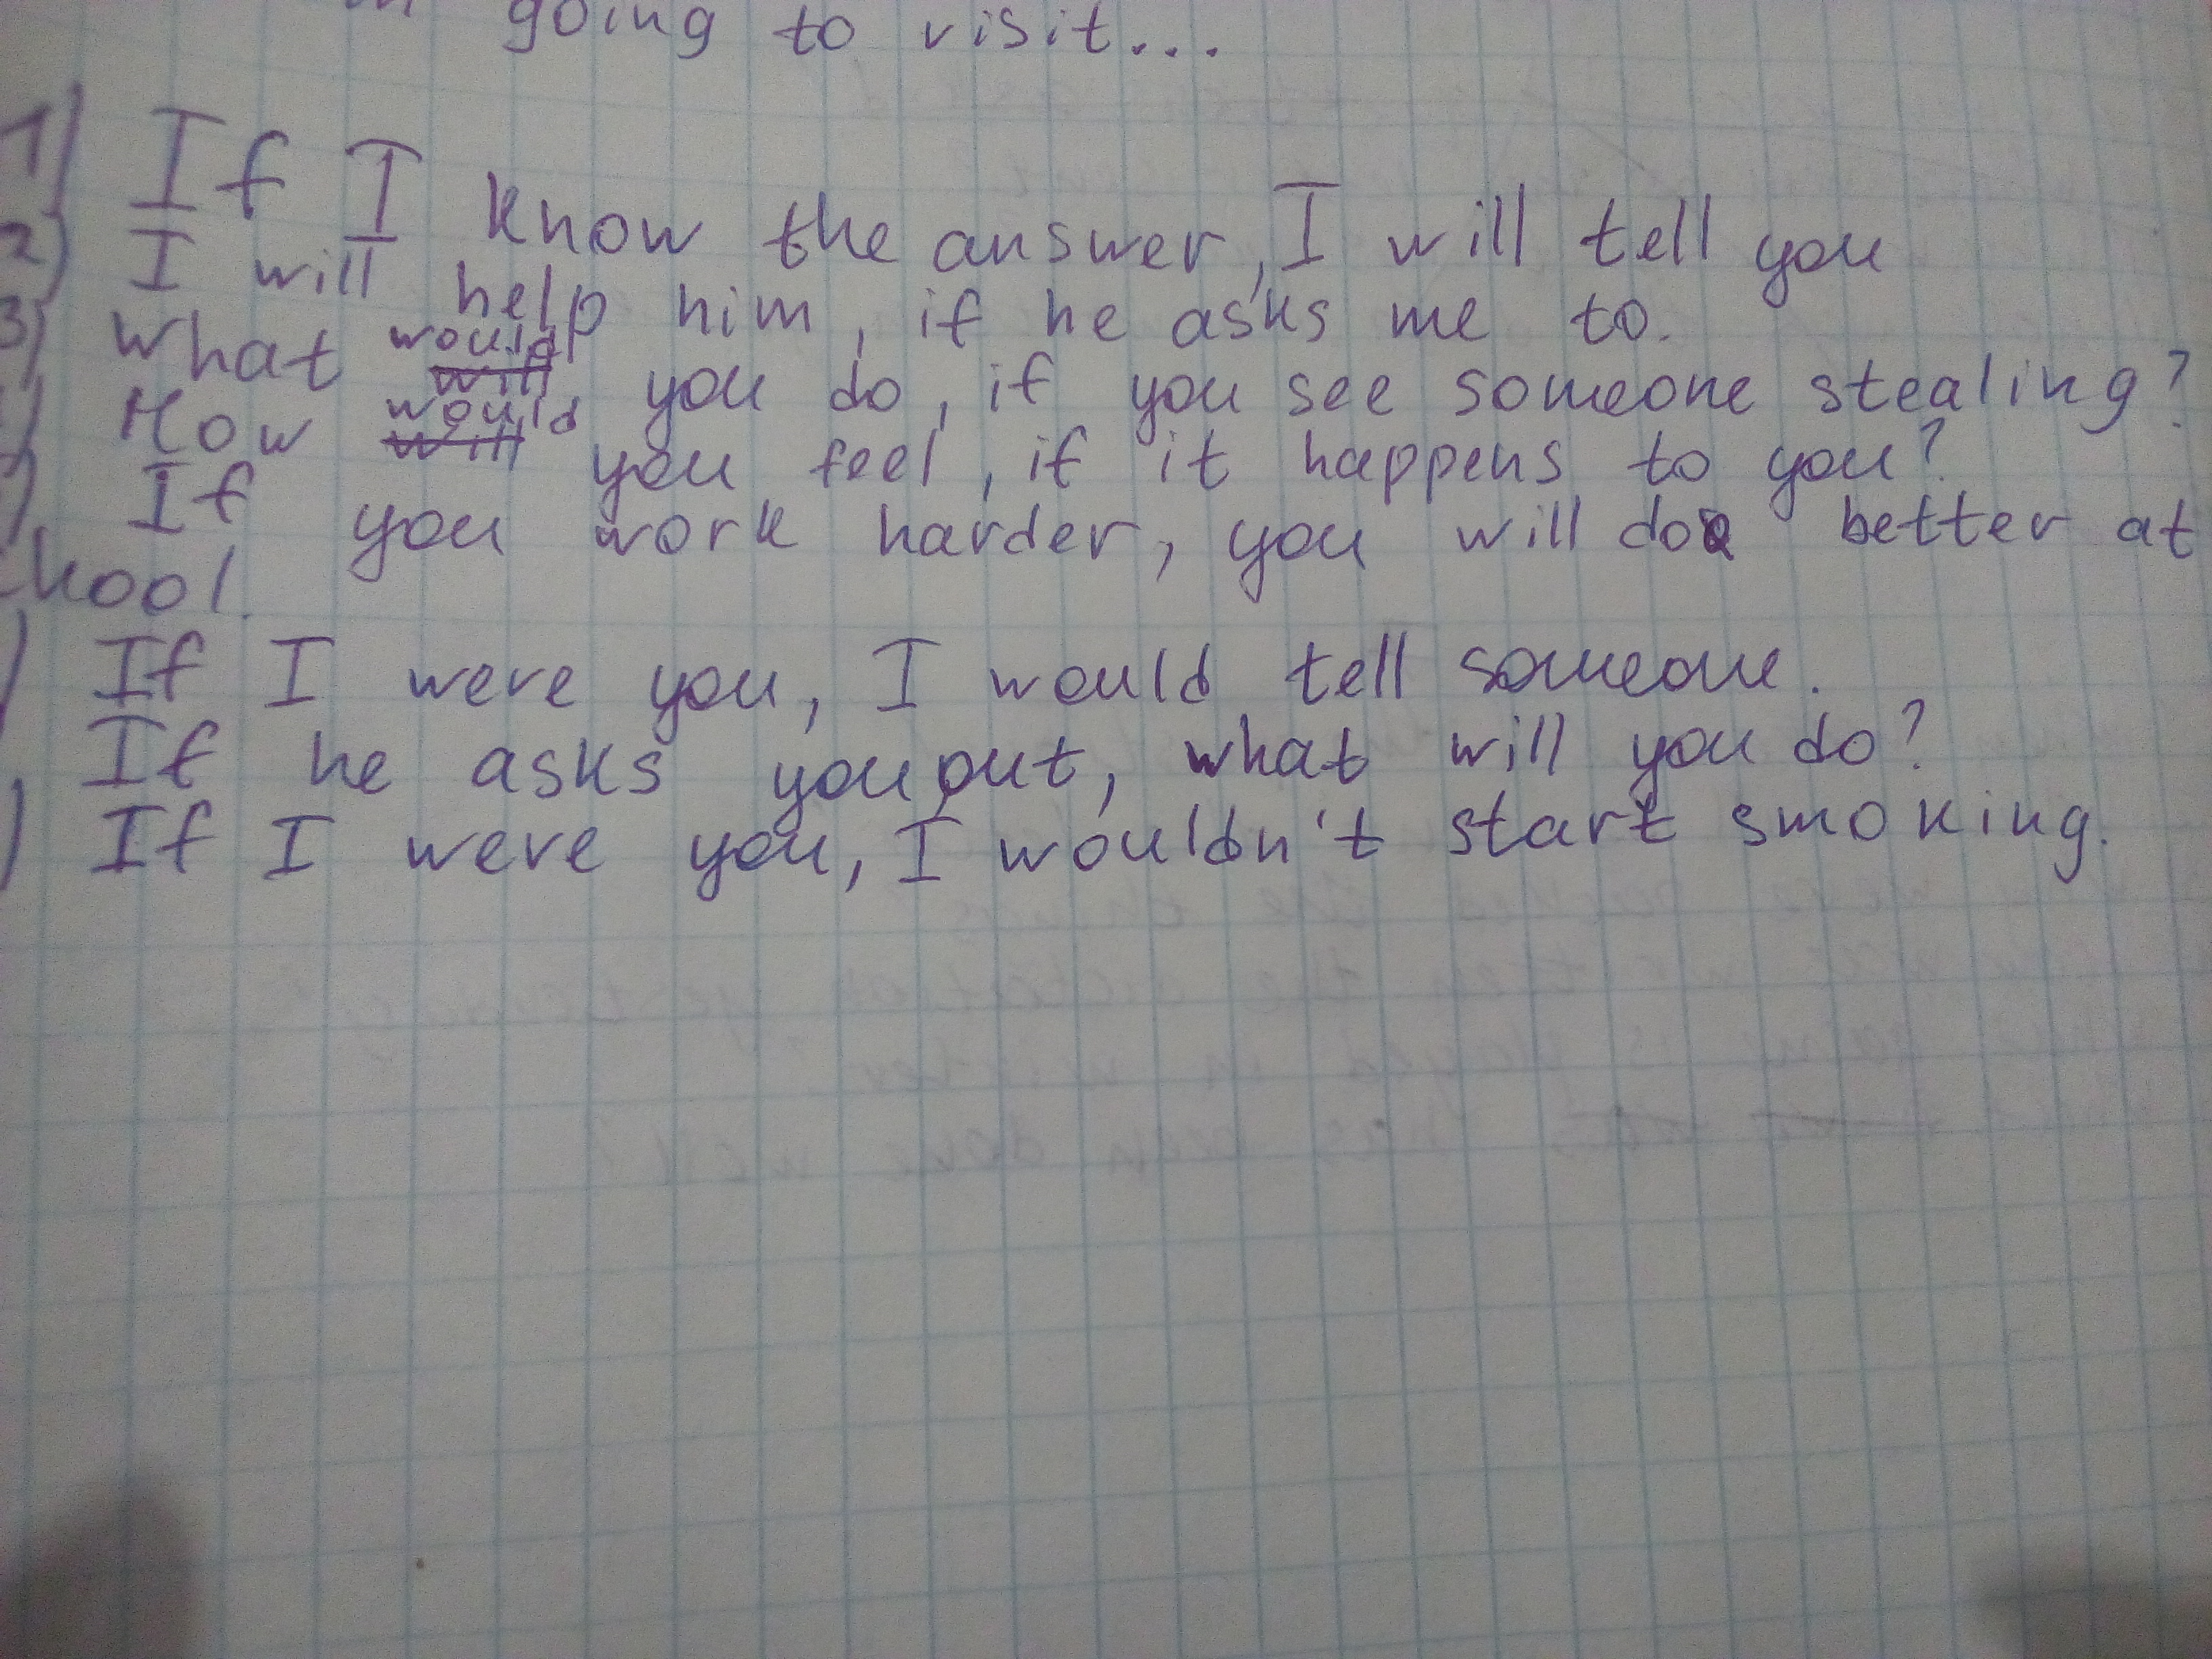 going to visit...
1) If I know the answer, I will tell you
2) I will help him, if he asks me to.
3) What would will you do, if you see someone stealing?
How would will you feel, if it happens to you?
If you work harder, you will do better at
chool.
) If I were you, I would tell someone.
If he asks you out, what will you do?
) If I were you, I wouldn't start smoking.